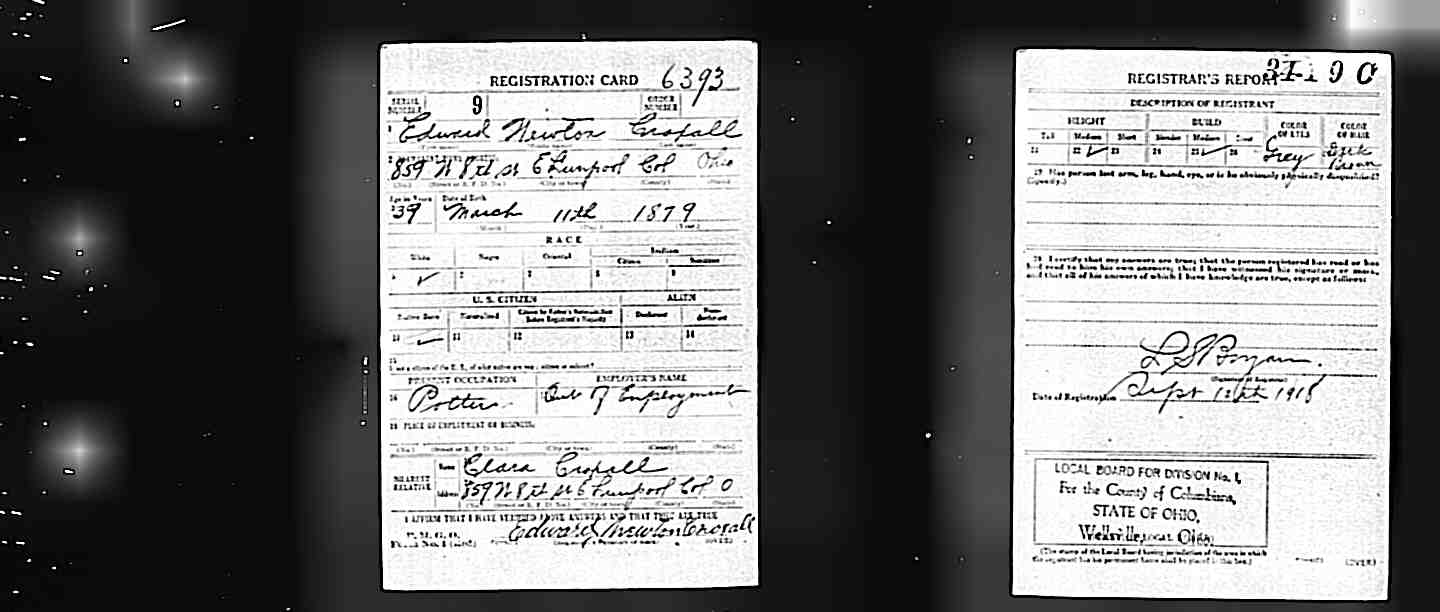 REGISTRATION CARD 6393
SERIAL NUMBER 9 ORDER NUMBER
1 Edward Newton Croxall
(First name) (Middle name) (Last name)
859 W 8th St E Liverpool Col Ohio
(No.) (Street or R. F. D. No.) (City or town) (County) (State)
Age in Years Date of Birth
39 March 11th 1879
(Month) (Day) (Year)
RACE
White Negro Oriental Indian
Citizen Noncitizen
U. S. CITIZEN ALIEN
Native Born Naturalized Citizen by Father's Naturalization Before Registrant's Majority Declarant Non-declarant
10 ✓ 11 12 13 14
15
If not a citizen of the U. S., of what nation are you a citizen or subject?
PRESENT OCCUPATION EMPLOYER'S NAME
16 Potter Out of Employment
18 PLACE OF EMPLOYMENT OR BUSINESS:
(No.) (Street or R. F. D. No.) (City or town) (County) (State)
NEAREST RELATIVE Name Clara Croxall
Address 859 W 8th St E Liverpool Col O
I AFFIRM THAT I HAVE VERIFIED ABOVE ANSWERS AND THAT THEY ARE TRUE
Edward Newton Croxall
(OVER)
REGISTRAR'S REPORT
DESCRIPTION OF REGISTRANT
HEIGHT BUILD COLOR OF EYES COLOR OF HAIR
Tall Medium Short Slender Medium Stout
21 22 ✓ 23 24 25 ✓ 26 Grey Dark Brown
29 Has person lost arm, leg, hand, eye, or is he obviously physically disqualified?
(Specify.)
30 I certify that my answers are true; that the person registered has read or has
had read to him his own answers; that I have witnessed his signature or mark,
and that all of his answers of which I have knowledge are true, except as follows:
(Signature of Registrar)
Date of Registration Sept 12th 1918
LOCAL BOARD FOR DIVISION No. 1,
For the County of Columbiana,
STATE OF OHIO,
Wellsville, Ohio
(The stamp of the Local Board having jurisdiction of the area in which
the registrant has his permanent home shall be placed in this box.)
(OVER)